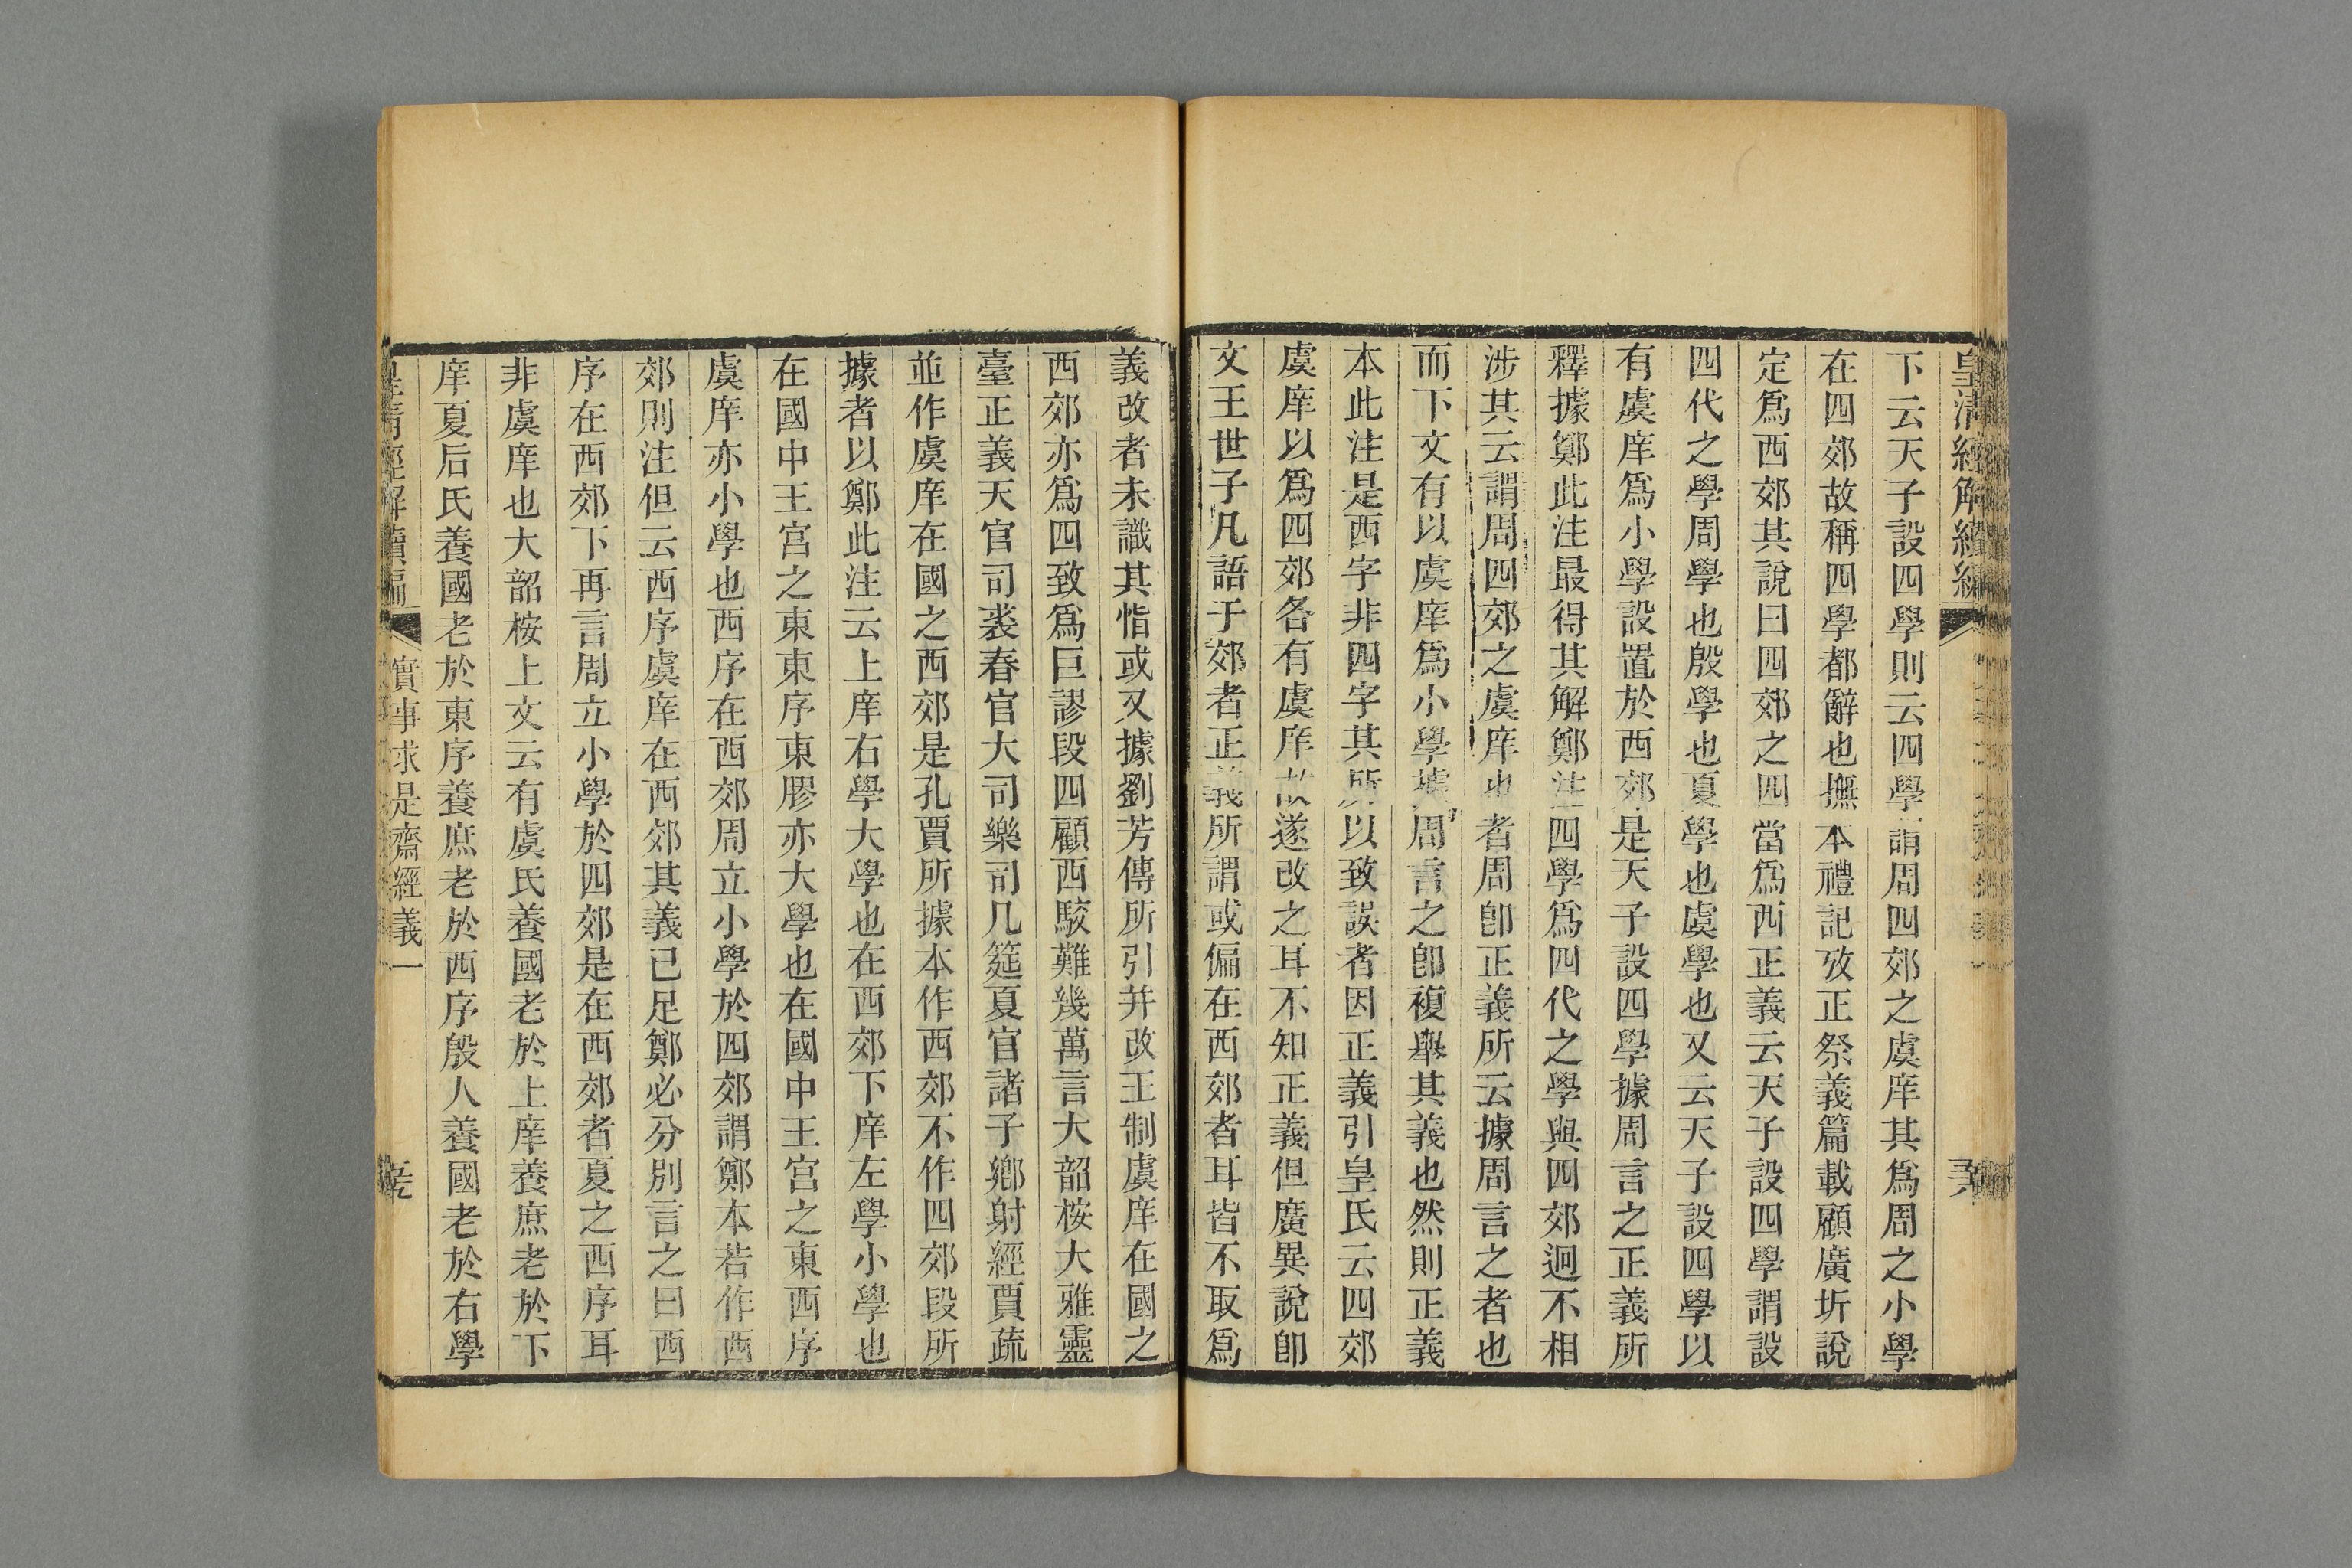 皇清經解續編
下云天子設四學則云四學謂周四郊之虞庠其爲周之小學
在四郊故稱四學都辭也撫本禮記攷正祭義篇載顧廣圻說
定爲西郊其說曰四郊之四當爲西正義云天子設四學謂設
四代之學周學也殷學也夏學也虞學也又云天子設四學以
有虞庠爲小學設置於西郊是天子設四學據周言之正義所
釋據鄭此注最得其解鄭注四學爲四代之學與四郊迥不相
涉其云謂周四郊之虞庠也者周卽正義所云據周言之者也
而下文有以虞庠爲小學據周言之卽複舉其義也然則正義
本此注是西字非四字其所以致誤者因正義引皇氏云四郊
虞庠以爲四郊各有虞庠故遂改之耳不知正義但廣異說卽
文王世子凡語于郊者正義所謂或偏在西郊者耳皆不取爲
義改者未識其恉或又據劉芳傳所引并改王制虞庠在國之
西郊亦爲四致爲巨謬段四顧西駮難幾萬言大韶桉大雅靈
臺正義天官司裘春官大司樂司几筵夏官諸子鄉射經賈疏
並作虞庠在國之西郊是孔賈所據本作西郊不作四郊段所
據者以鄭此注云上庠右學大學也在西郊下庠左學小學也
在國中王宮之東東序東膠亦大學也在國中王宮之東西序
虞庠亦小學也西序在西郊周立小學於四郊謂鄭本若作西
郊則注但云西序虞庠在西郊其義已足鄭必分別言之曰西
序在西郊下再言周立小學於四郊是在西郊者夏之西序耳
非虞庠也大韶桉上文云有虞氏養國老於上庠養庶老於下
庠夏后氏養國老於東序養庶老於西序殷人養國老於右學
皇清經解續編 實事求是齋經義一